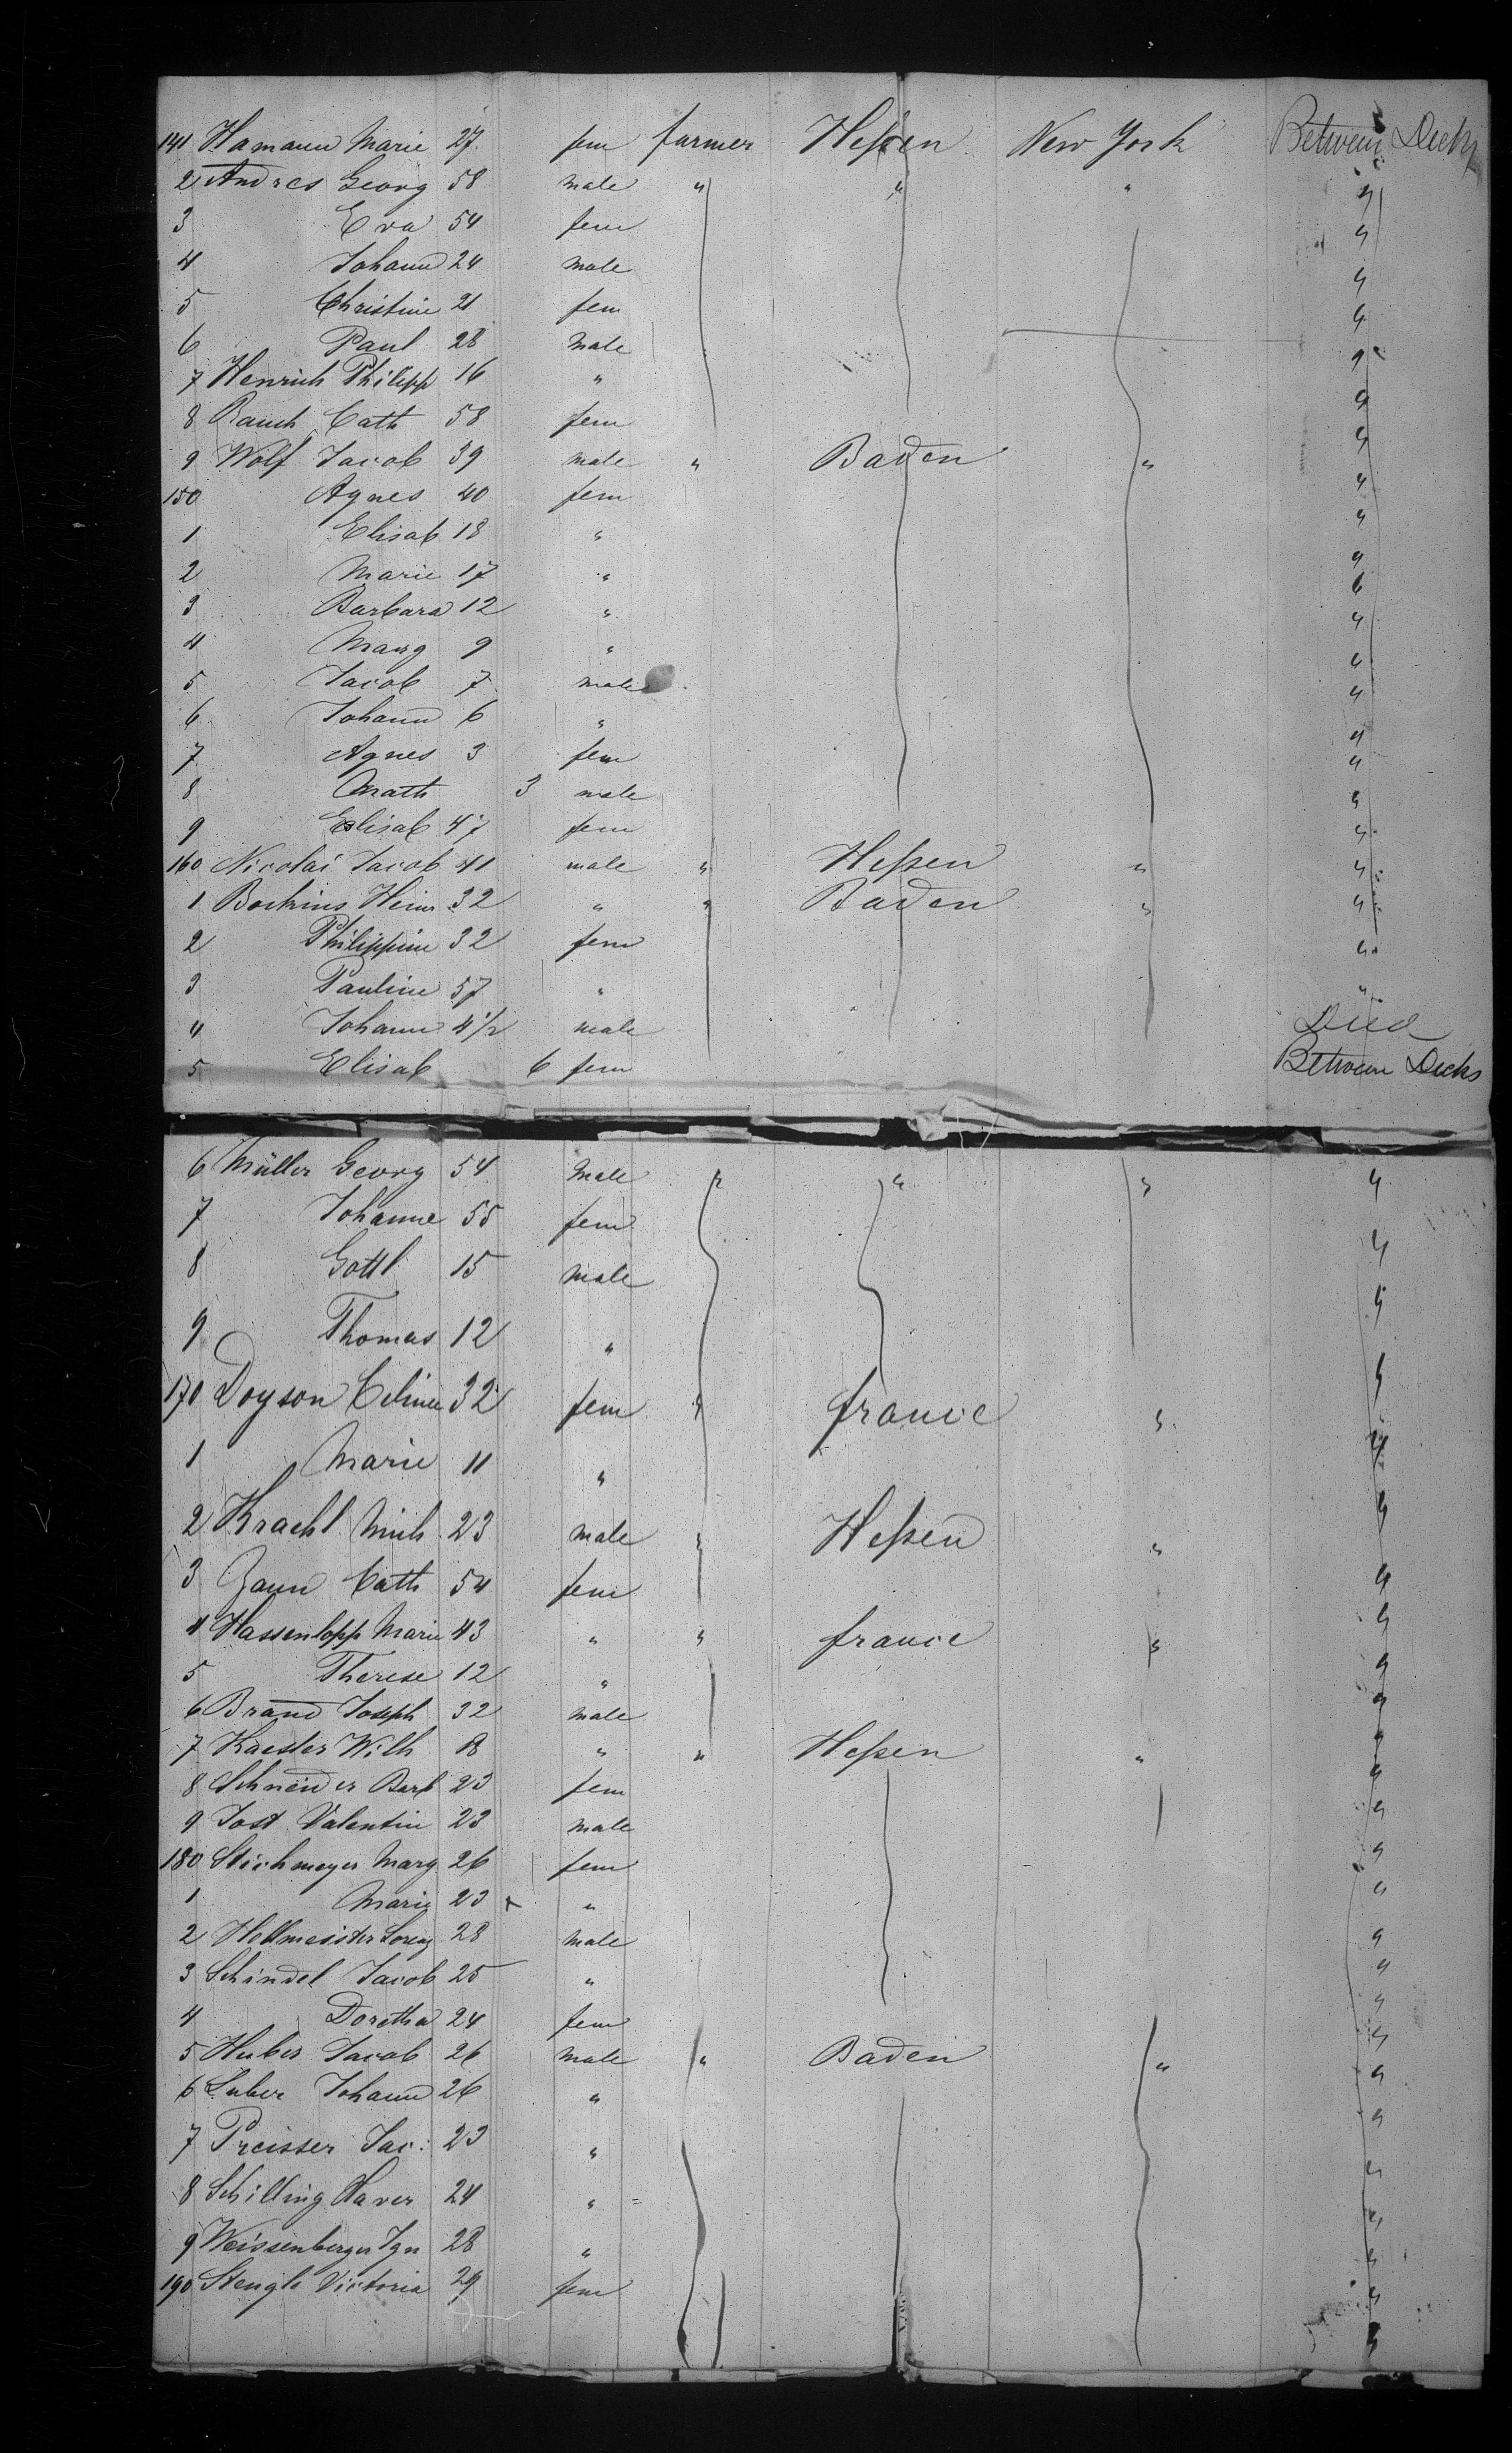 141 Hamann Marie 27 fem farmer Heßen New York Between Decks
2 Andres Georg 58 male " " " "
3 Eva 54 fem "
4 Johann 24 male "
5 Christine 21 fem "
6 Paul 28 male "
7 Henrich Philipp 16 " "
8 Rauch Cath 58 fem "
9 Wolf Jacob 39 male " Baden " "
150 Agnes 40 fem "
1 Elisab 18 " "
2 Marie 17 " "
3 Barbara 12 " "
4 Marg 9 " "
5 Jacob 7 male "
6 Johann 6 " "
7 Agnes 3 fem "
8 Math 3 male "
9 Elisab 47 fem "
160 Nicolai Jacob 41 male " Heßen " "
1 Heinr 32 " " Baden " "
2 Philippine 32 fem "
3 Pauline 57 " "
4 Johann 4 1/2 male Died
5 Elisab 6 fem Between Decks
6 Müller Georg 54 male " " " "
7 Johanne 55 fem "
8 Gottl 15 male "
9 Thomas 12 " "
170 Doyson Celine 32 fem " france " "
1 Marie 11 " "
2 Krachl Mich 23 male " Heßen " "
3 Zann Cath 54 fem "
4 Hassenlopp Marie 43 " " france " "
5 Therese 12 " "
6 Brand Joseph 32 male "
7 Kaester Wilh 18 " " Heßen " "
8 Schneider Barb 23 fem "
9 Jost Valentin 23 male "
180 Stichmeyer Marg 26 fem "
1 Marie 23 " "
2 Hollmeister Lorenz 28 male "
3 Schindel Jacob 25 " "
4 Doretha 24 fem "
5 Huber Jacob 26 male " Baden " "
6 Luber Johann 26 " "
7 Preisser Jac: 23 " "
8 Schilling Xaver 24 " "
9 Weissenberger Ign 28 " "
190 Stengle Victoria 29 fem "